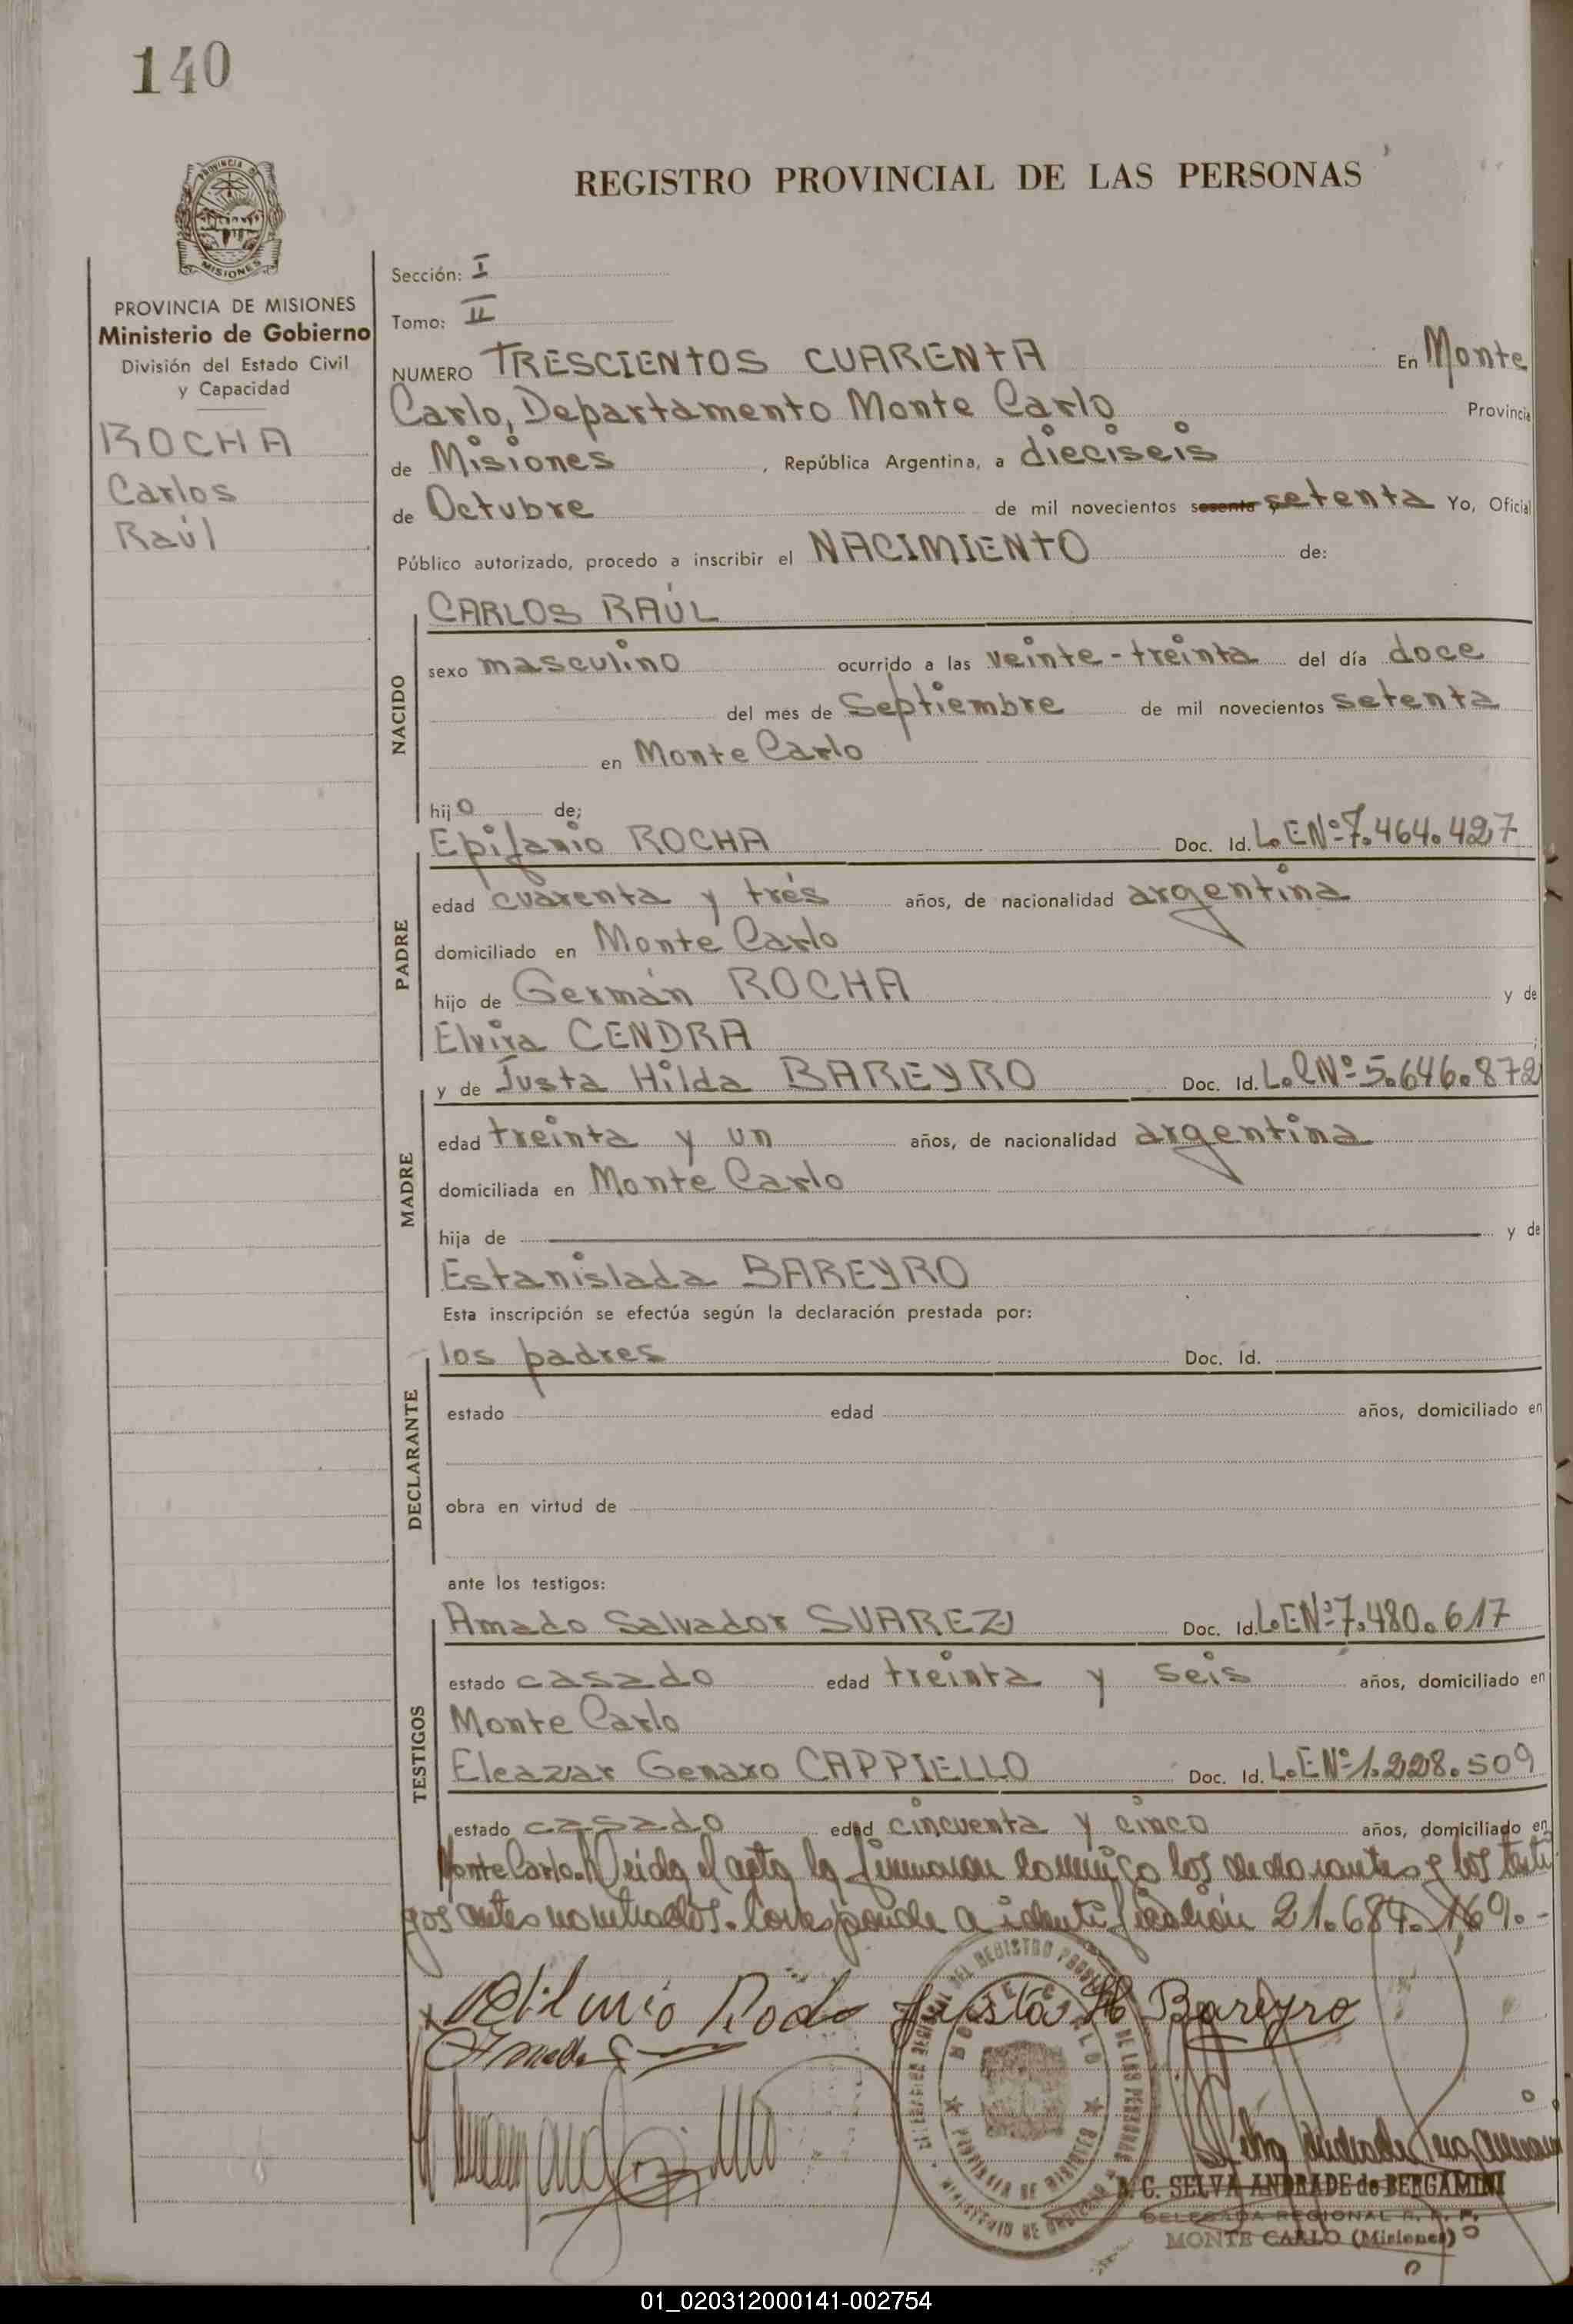 140
REGISTRO PROVINCIAL DE LAS PERSONAS
PROVINCIA DE MISIONES
Ministerio de Gobierno
División del Estado Civil
y Capacidad
ROCHA
Carlos
Raúl
Sección: I
Tomo: II
NUMERO TRESCIENTOS CUARENTA En Monte
Carlo, Departamento Monte Carlo Provincia
de Misiones , República Argentina, a dieciseis
de Octubre de mil novecientos sesenta y setenta Yo, Oficial
Público autorizado, procedo a inscribir el NACIMIENTO de:
NACIDO
CARLOS RAÚL
sexo masculino ocurrido a las veinte-treinta del día doce
del mes de Septiembre de mil novecientos setenta
en Monte Carlo
hijo de;
PADRE
Epifanio ROCHA Doc. Id. L.E Nº 7.464.427
edad cuarenta y tres años, de nacionalidad argentina
domiciliado en Monte Carlo
hijo de Germán ROCHA y de
Elvira CENDRA ;
MADRE
y de Justa Hilda BAREYRO Doc. Id. L.C Nº 5.646.872
edad treinta y un años, de nacionalidad argentina
domiciliada en Monte Carlo
hija de y de
Estanislada BAREYRO
Esta inscripción se efectúa según la declaración prestada por:
DECLARANTE
los padres Doc. Id.
estado edad años, domiciliado en
obra en virtud de
ante los testigos:
TESTIGOS
Amado Salvador SUAREZ Doc. Id. L.E Nº 7.480.617
estado casado edad treinta y seis años, domiciliado en
Monte Carlo
Eleazar Genaro CAPPIELLO Doc. Id. L.E Nº 1.228.509
estado casado edad cincuenta y cinco años, domiciliado en
Monte Carlo. Leida el acta la firmaron conmigo los declarantes y los testi
gos antes nombrados. Corresponde a identificación 21.687.169.-
Justa H Bareyro
MONTE CARLO
PROVINCIA DE MISIONES
MINISTERIO DE GOBIERNO
N. C. SELVA ANDRADE de BERGAMINI
DELEGADA REGIONAL R. P. P.
MONTE CARLO (Misiones)
01_020312000141-002754